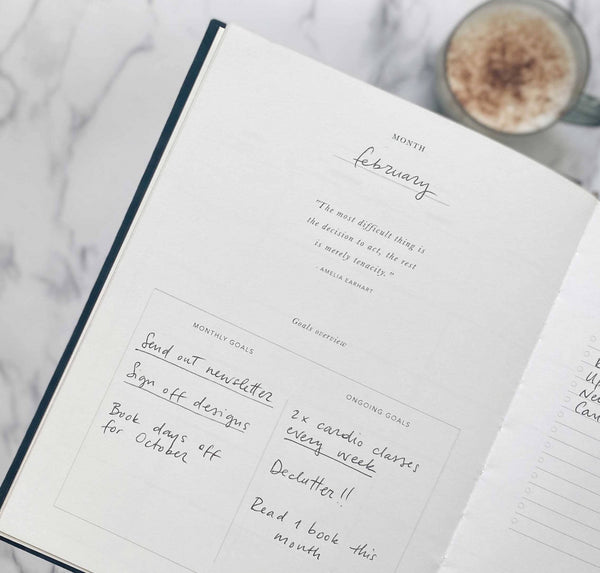 MONTH
february
"The most difficult thing is
the decision to act, the rest
is merely tenacity."
- AMELIA EARHART
Goals overview
MONTHLY GOALS
Send out newsletter
Sign off designs
Book days off
for October
ONGOING GOALS
2x cardio classes
every week
Declutter!!
Read 1 book this
month